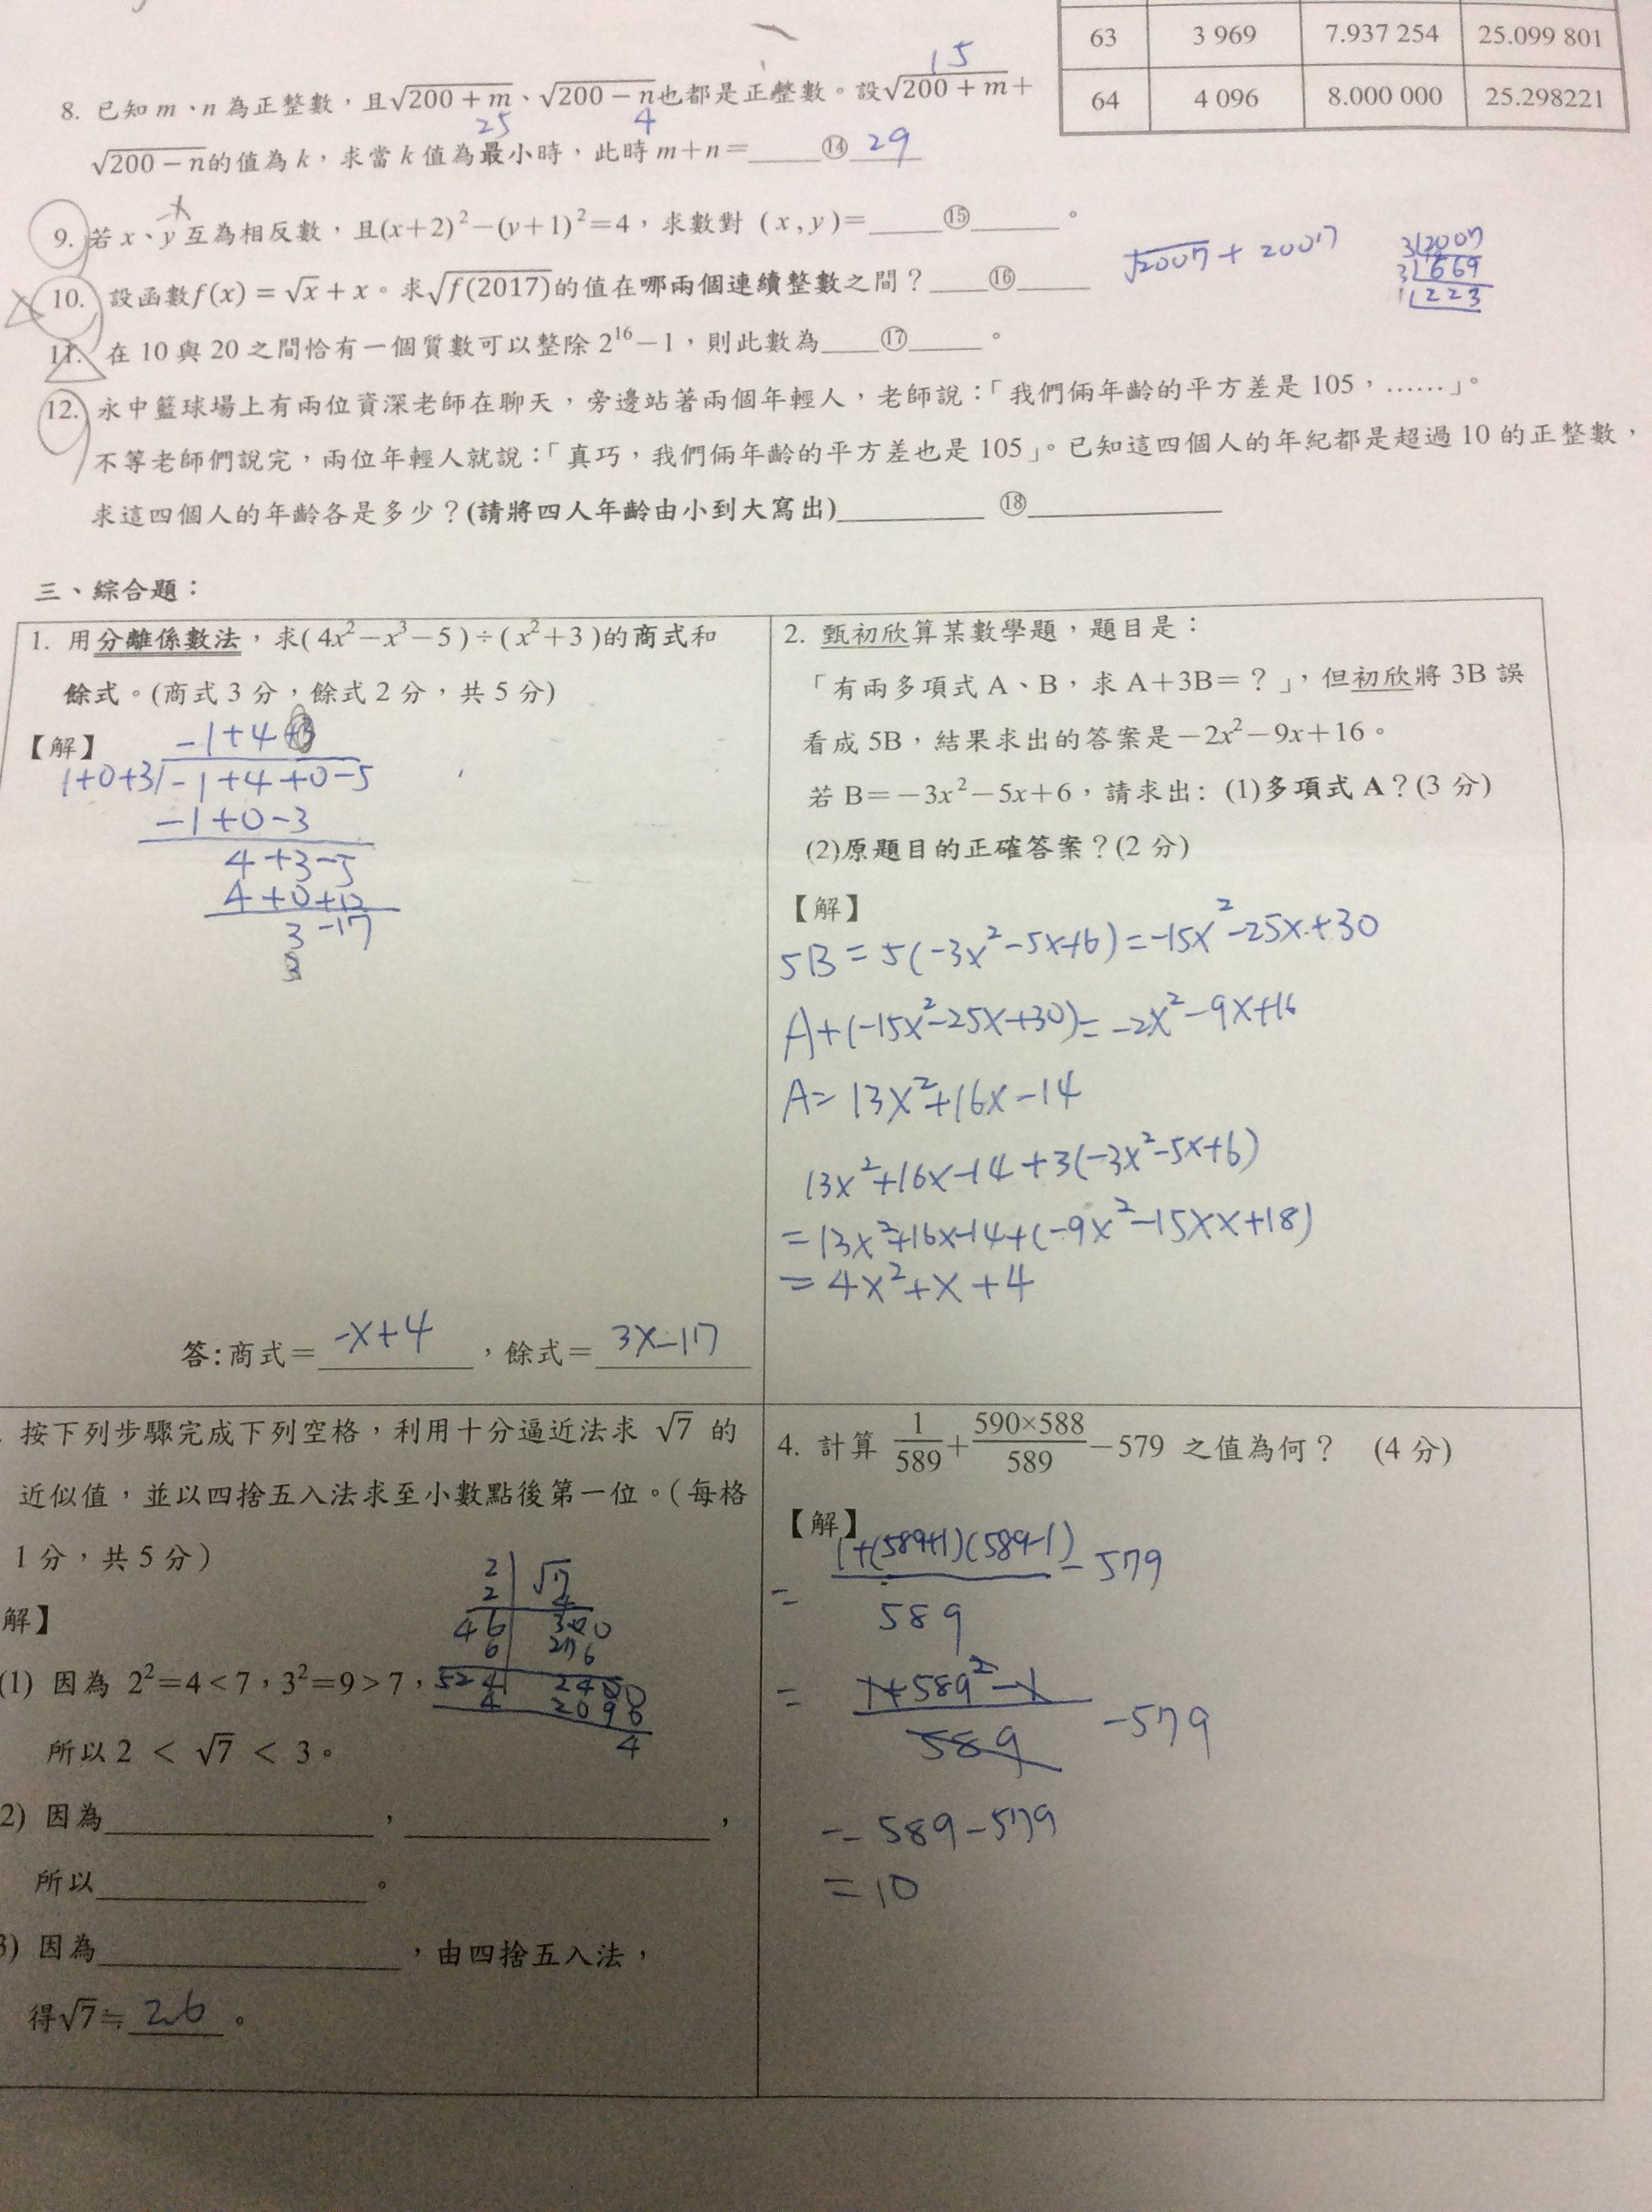 63 3 969 7.937 254 25.099 801
64 4 096 8.000 000 25.298221
15
8. 已知 m、n 為正整數，且√200 + m、√200 − n也都是正整數。設√200 + m +
25 4
√200 − n的值為 k，求當 k 值為最小時，此時 m＋n＝____⑭ 29
-x
9. 若 x、y 互為相反數，且(x+2)²−(y+1)²=4，求數對 (x , y)＝____⑮____。
10. 設函數f(x) = √x + x。求√f(2017)的值在哪兩個連續整數之間？____⑯____
√2007 + 2007
3|2007
3|669
|223
11. 在 10 與 20 之間恰有一個質數可以整除 2¹⁶−1，則此數為____⑰____。
12. 永中籃球場上有兩位資深老師在聊天，旁邊站著兩個年輕人，老師說：「我們倆年齡的平方差是 105，……」。
不等老師們說完，兩位年輕人就說：「真巧，我們倆年齡的平方差也是 105」。已知這四個人的年紀都是超過 10 的正整數，
求這四個人的年齡各是多少？(請將四人年齡由小到大寫出)________ ⑱________
三、綜合題：
1. 用分離係數法，求( 4x²−x³−5 )÷( x²+3 )的商式和
餘式。(商式 3 分，餘式 2 分，共 5 分)
【解】
-1+4
1+0+3/-1+4+0-5
-1+0-3
4+3-5
4+0+12
3-17
答:商式＝ -x+4 ，餘式＝ 3x-17
2. 甄初欣算某數學題，題目是：
「有兩多項式 A、B，求 A＋3B＝？」，但初欣將 3B 誤
看成 5B，結果求出的答案是−2x²−9x＋16。
若 B＝−3x²−5x＋6，請求出: (1)多項式 A？(3 分)
(2)原題目的正確答案？(2 分)
【解】
5B = 5(-3x²-5x+6) = -15x²-25x+30
A+(-15x²-25x+30) = -2x²-9x+16
A= 13x²+16x-14
13x²+16x-14+3(-3x²-5x+6)
= 13x²+16x-14+(-9x²-15xx+18)
= 4x²+x+4
按下列步驟完成下列空格，利用十分逼近法求 √7 的
近似值，並以四捨五入法求至小數點後第一位。(每格
1 分，共 5 分)
解】
2 √7
2 4
46 300
6 276
524 2400
4 2096
4
(1) 因為 2²＝4＜7，3²＝9＞7，
所以 2 ＜ √7 ＜ 3。
2) 因為________，________，
所以________。
3) 因為________，由四捨五入法，
得√7≒ 2.6 。
4. 計算 1/589 + 590×588/589 − 579 之值為何？ (4 分)
【解】
= 1+(589+1)(589-1)/589 - 579
= 1+589²-1/589 - 579
= 589-579
= 10